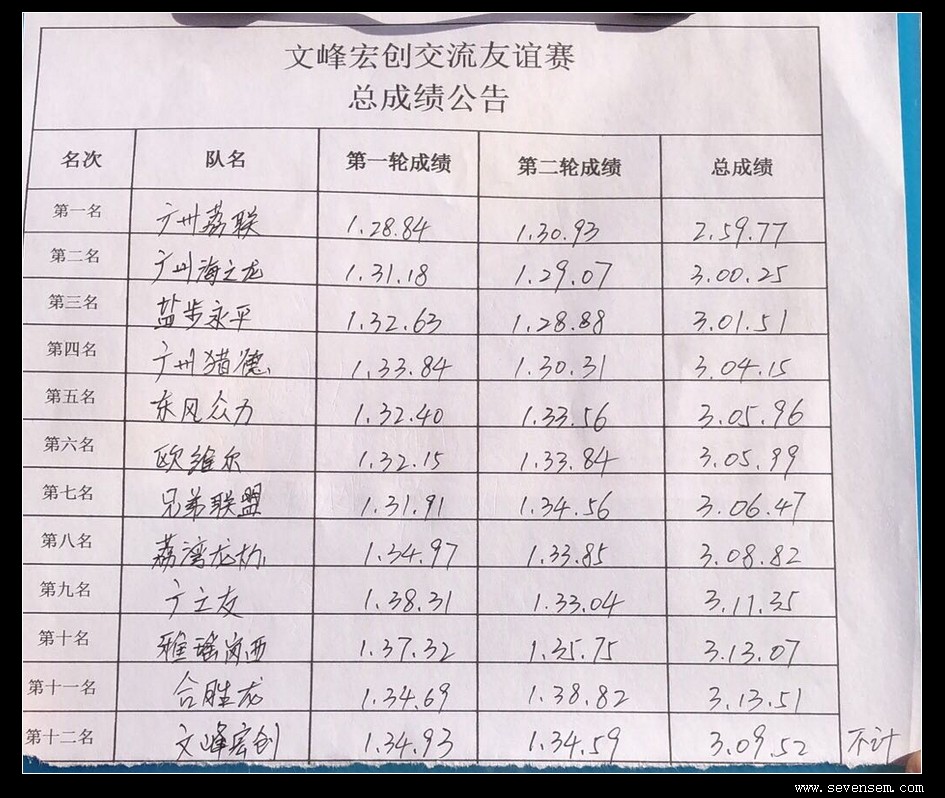 文峰宏创交流友谊赛
总成绩公告
名次 队名 第一轮成绩 第二轮成绩 总成绩
第一名 广州荔联 1.28.84 1.30.93 2.59.77
第二名 广州海之龙 1.31.18 1.29.07 3.00.25
第三名 盐步永平 1.32.63 1.28.88 3.01.51
第四名 广州猎德 1.33.84 1.30.31 3.04.15
第五名 东风众力 1.32.40 1.33.56 3.05.96
第六名 欧维尔 1.32.15 1.33.84 3.05.99
第七名 兄弟联盟 1.31.91 1.34.56 3.06.47
第八名 荔湾龙标 1.34.97 1.33.85 3.08.82
第九名 广立友 1.38.31 1.33.04 3.11.35
第十名 雅瑶岗西 1.37.32 1.35.75 3.13.07
第十一名 合胜龙 1.34.69 1.38.82 3.13.51
第十二名 文峰宏创 1.34.93 1.34.59 3.09.52 不计
www.sevensem.com